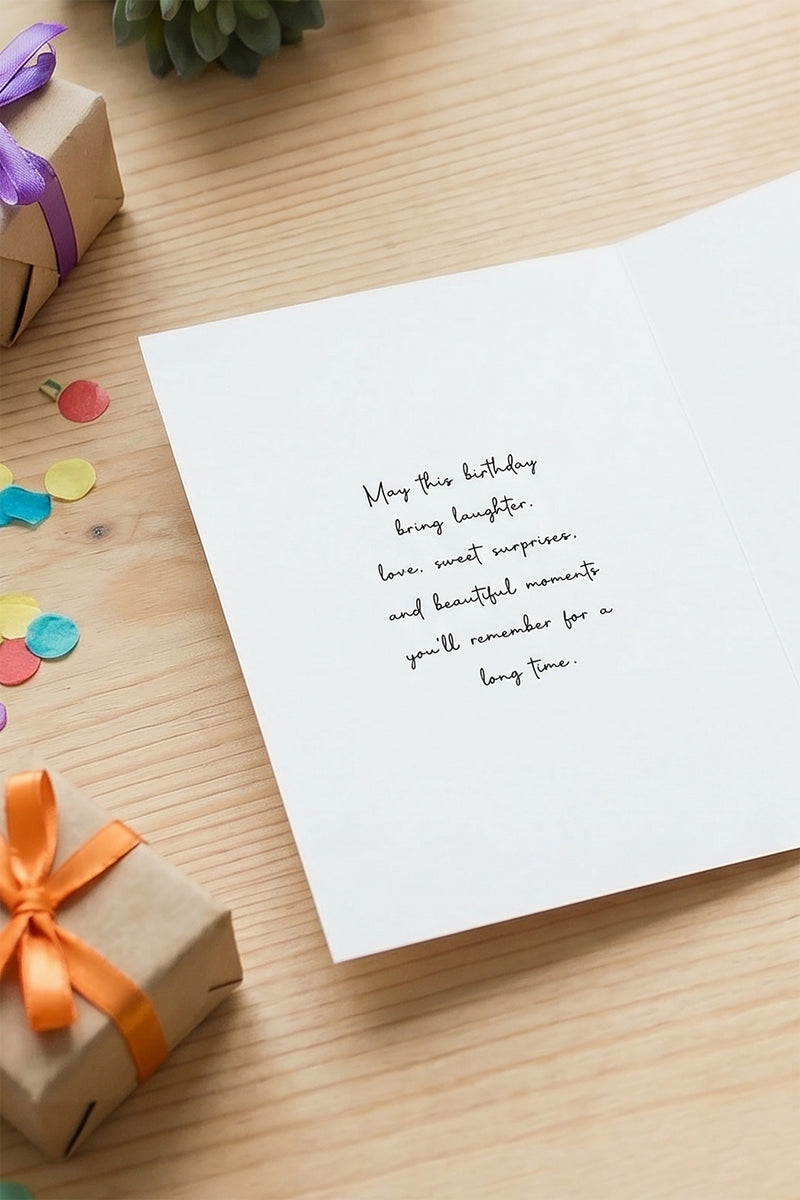 May this birthday
bring laughter,
love, sweet surprises,
and beautiful moments
you'll remember for a
long time.